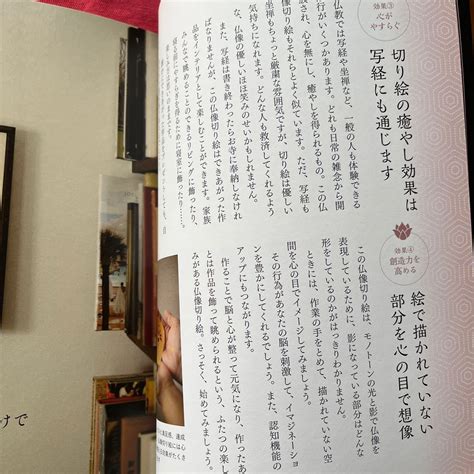 効果③
心が
やすらぐ
切り絵の癒やし効果は
写経にも通じます
仏教では写経や坐禅など、一般の人も体験できる
行がいくつかあります。どれも日常の雑念から開
放され、心を無にし、癒やしを得られるもの。この仏
像切り絵もそれらとよく似ています。ただ、写経も
坐禅もちょっと厳粛な雰囲気ですが、切り絵は優し
い仏像の優しいほほ笑みのせいかもしれません。
気持ちになれます。どんな人も救済してくれるよう
また、写経は書き終わったらお寺に奉納しなけれ
ばなりませんが、この仏像切り絵はできあがった作
品をインテリアとして楽しむことができます。家族
みんなで眺めることのできるリビングに飾ったり、
寝る前にやすらぎを得るために寝室に飾ったり……。
効果④
創造力を
高める
絵で描かれていない
部分を心の目で想像
この仏像切り絵は、モノトーンの光と影で仏像を
表現しているために、影になっている部分はどんな
形をしているのかがはっきりわかりません。
ときには、作業の手をとめて、描かれていない空
間を心の目でイメージしてみましょう。
その行為があなたの脳を刺激して、イマジネーショ
ンを豊かにしてくれるでしょう。また、認知機能の
アップにもつながります。
作ることで脳と心が整って元気になり、作ったあ
とは作品を飾って眺められるという、ふたつの楽し
みがある仏像切り絵。さっそく、始めてみましょう。
けで